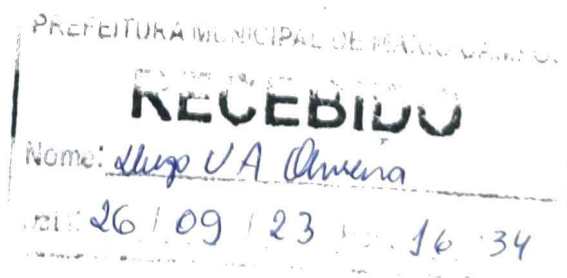 PREFEITURA MUNICIPAL DE MARIO CAMPOS
RECEBIDO
Nome: V A Oliveira
26 / 09 / 23 16:34